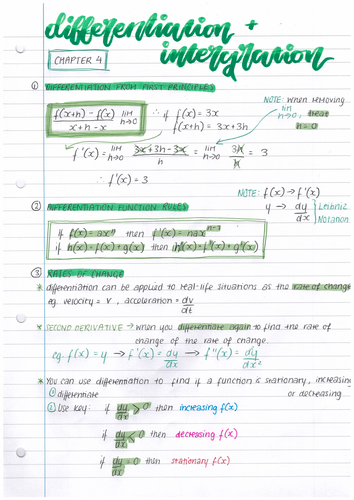 differentiation +
intergration
CHAPTER 4
① DIFFERENTIATION FROM FIRST PRINCIPLES
f(x+h) - f(x) / x+h-x lim h→0
∴ if f(x) = 3x
f(x+h) = 3x+3h
NOTE: when removing
lim h→0, treat
h=0
f'(x) = lim h→0 3x+3h-3x / h = lim h→0 3h / h = 3
∴ f'(x) = 3
NOTE: f(x) → f'(x)
y → dy/dx } Leibniz
Notation
② DIFFERENTIATION FUNCTION RULES
if f(x) = axⁿ then f'(x) = naxⁿ⁻¹
if h(x) = f(x) + g(x) then h'(x) = f'(x) + g'(x)
③ RATES OF CHANGE
* differentiation can be applied to real-life situations as the rate of change
eg. velocity = v, acceleration = dv/dt
* SECOND DERIVATIVE → when you differentiate again to find the rate of
change of the rate of change.
eg. f(x) = y → f'(x) = dy/dx → f''(x) = d²y/dx²
* You can use differentiation to find if a function is stationary, increasing
① differentiate or decreasing.
② Use key: if dy/dx > 0 then increasing f(x)
if dy/dx < 0 then decreasing f(x)
if dy/dx = 0 then stationary f(x)